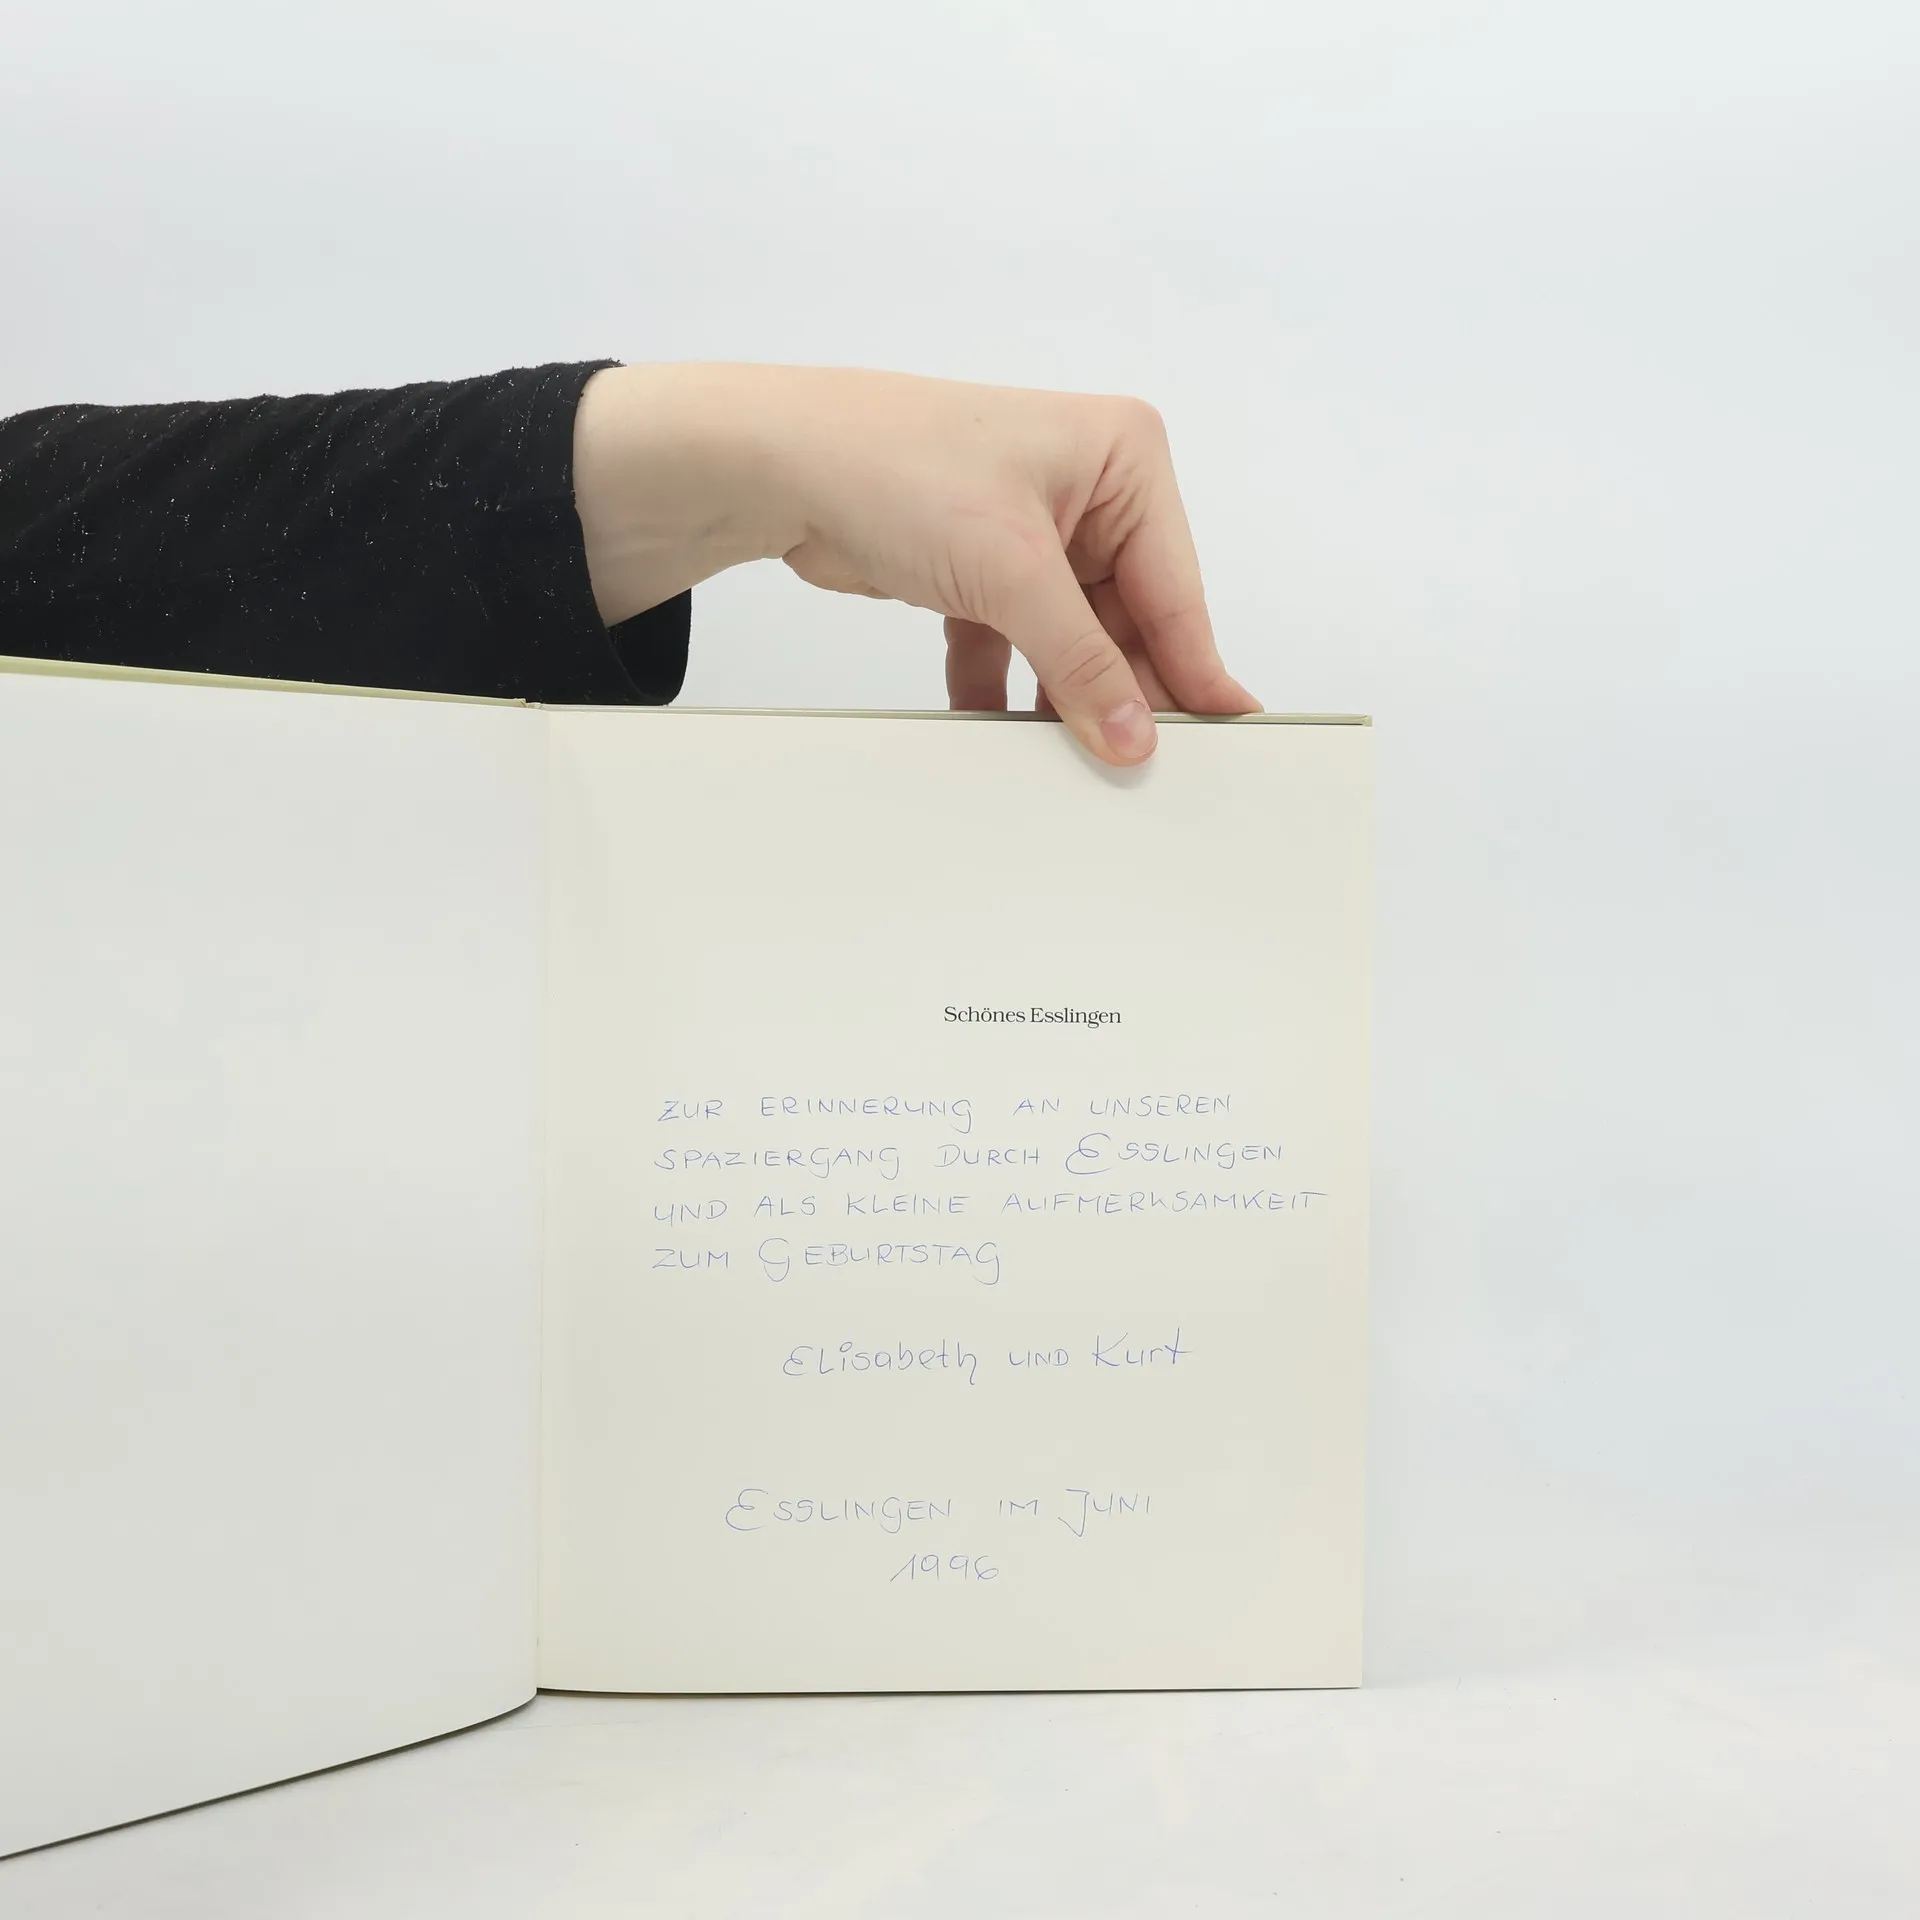 Schönes Esslingen
ZUR ERINNERUNG AN UNSEREN
SPAZIERGANG DURCH ESSLINGEN
UND ALS KLEINE AUFMERKSAMKEIT
ZUM GEBURTSTAG
Elisabeth UND Kurt
ESSLINGEN IM JUNI
1996